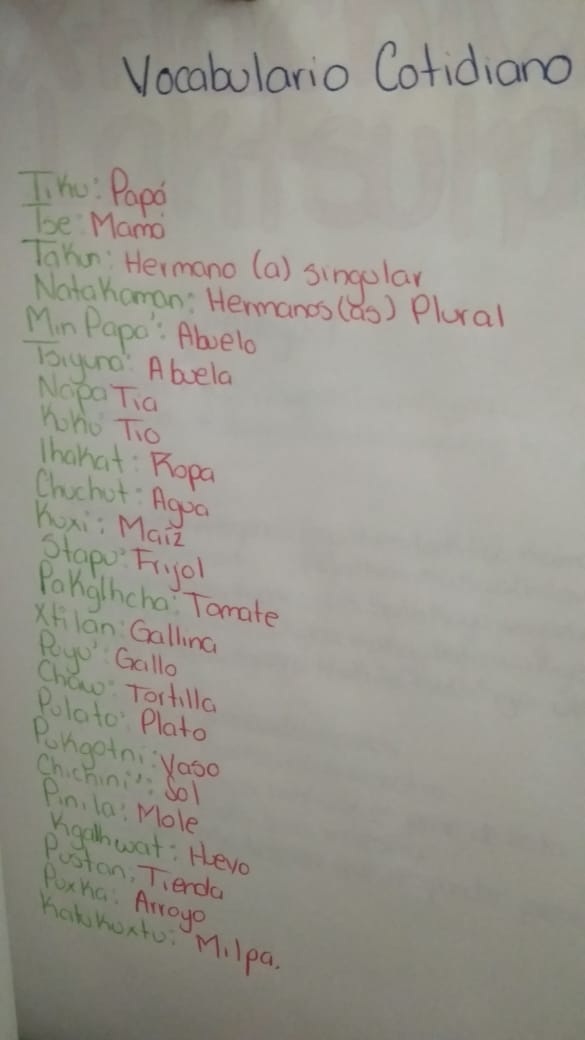 Vocabulario Cotidiano
Tiku: Papá
Tse: Mamá
Takun: Hermano (a) singular
Natakaman: Hermanos (as) Plural
Min Papa': Abuelo
Tsiyuna: Abuela
Napa Tia
Kuku Tio
lhakat: Ropa
Chuchut: Agua
Kuxi: Maíz
Stapu: Frijol
Pakglhcha: Tomate
Xtilan: Gallina
Puyu': Gallo
Chaw: Tortilla
Pulatu: Plato
Pokgotni: Vaso
Chichini': Sol
Pinila: Mole
Kgalhwat: Huevo
Pustan: Tienda
Puxka: Arroyo
Katukuxtu: Milpa.